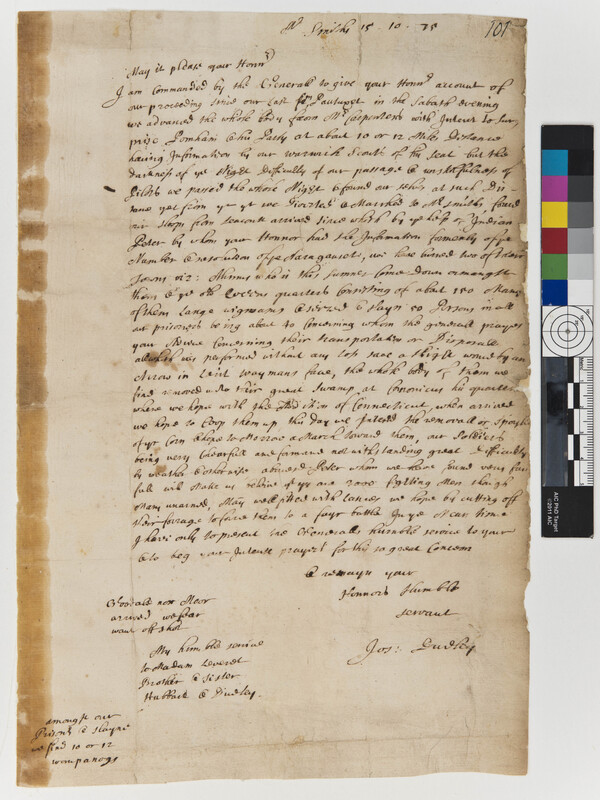 Mr Smiths 15 · 10 · 75
101
May it please your Honnr
I am Commanded by the Generall to give your Honnr account of
our proceeding since our last fm Pautuxet in the Sabath evening
we advanced the whole body from Mr Carpenters with Intent to Sur
prize Pomham & his Party at about 10 or 12 Miles Distance
having Information by our warwick Scouts of his seat but the
Darkness of ye Night Difficulty of our passage & unskilfulness of
Pilots we passed the whole Night & found our selves at such Dis
tance yet from ym yt we Diverted & Marched to Mr Smiths found
our sloops from seaconk arrived since which by ye help of Indian
Peter by whom your Honnor had the Information formerly of ye
Number & resolution of ye Naragansets, we have burned two of their
towns viz: who is this summer come down amongst
them & ye old Queens quarters consisting of about 150 Many
of them large wigwams & seized & slayn 50 Persons in all
our prisoners being about 40 Concerning whom the generall prayes
your Advice Concerning their transportation or Disposall
all which was performed without any loss save a slight wound by an
Arrow in Leivt waymans face, the whole body of them we
find removed into their great swamp at Canonicus his quarters
where we hope with the addition of Connecticut, when arrived
we hope to Coop them up, this Day we Intend the removall or spoyle
of yr Corn & hope to Morrow a March toward them, our Soldiers
being very Chearfull and forward notwithstanding great Difficulty
by weather & otherwise abovesd Peter whom we have found very fai
full will Make us believe yt yy are 3000 fighting Men though
Many unarmed, Many well fitted with lances we hope by cutting off
their forage to force them to a fayr battle In ye Mean time
I have only to present the Generalls humble service to your
& to beg your Intense prayers for this so great Concern
& remayn your
Honnors Humble
servant
Jos: Dudley
Goodale nor Moor
arrived we fear
want of shot
My humble service
to Madam Leveret
Brother & Sister
Hubbard & Dudley.
amongst our
Prisonrs & slayne
we find 10 or 12
wompanogs